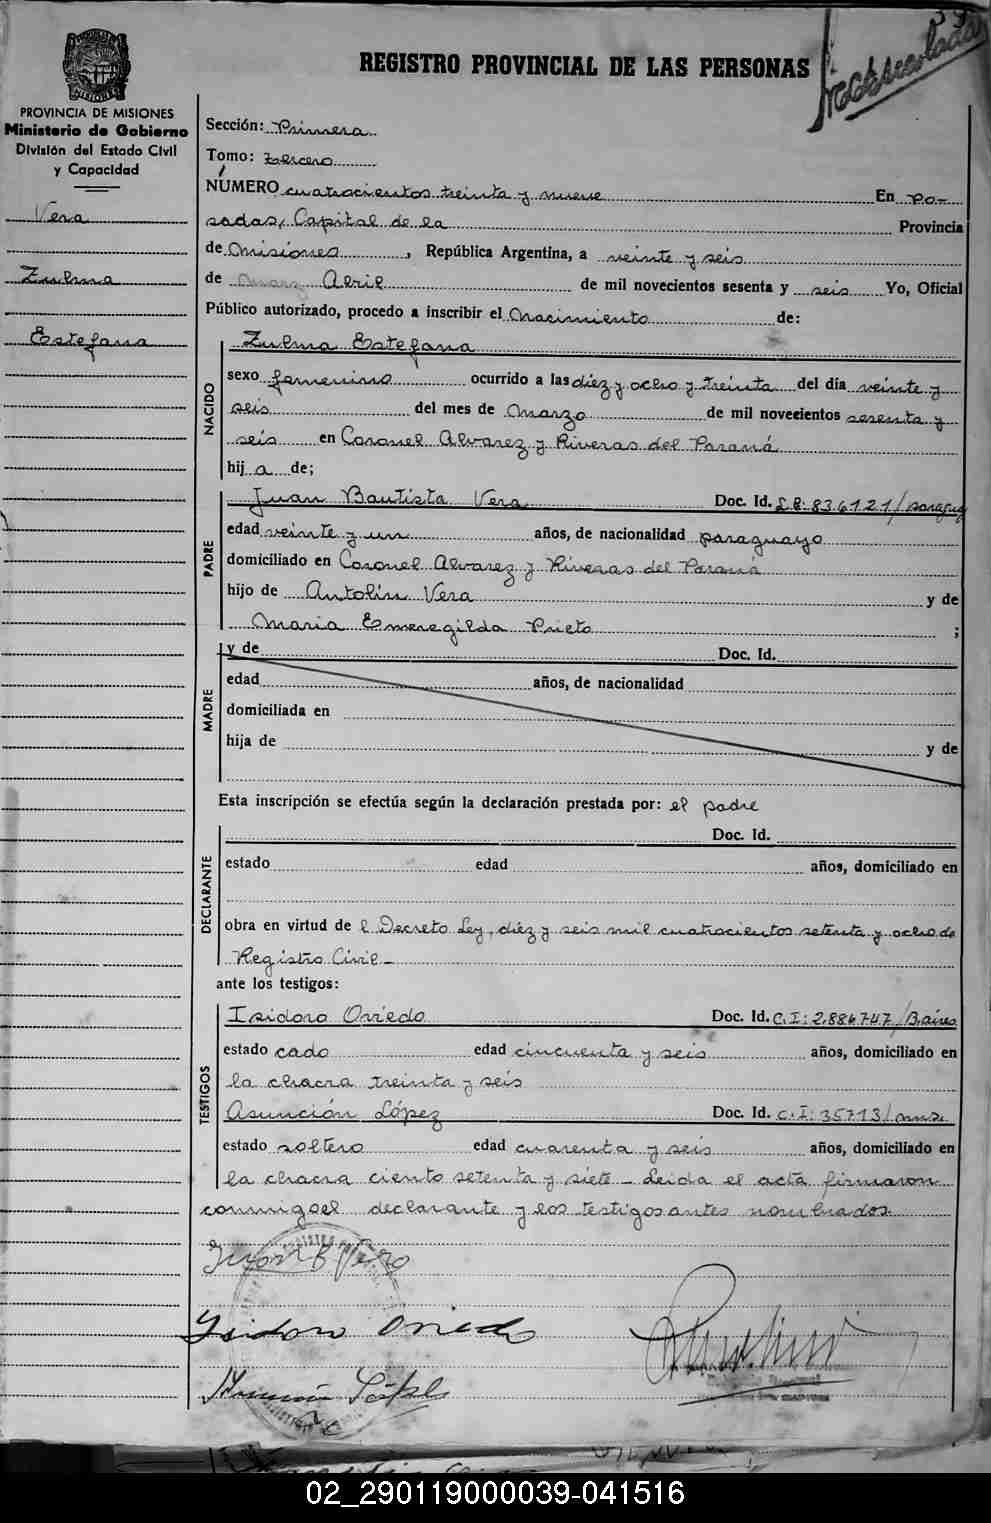 39
PROVINCIA DE MISIONES
Ministerio de Gobierno
División del Estado Civil
y Capacidad
Vera
Zulma
Estefana
REGISTRO PROVINCIAL DE LAS PERSONAS
Sección: Primera
Tomo: tercero
NÚMERO cuatrocientos treinta y nueve En Po-
sadas, Capital de la Provincia
de Misiones, República Argentina, a veinte y seis
de Abril de mil novecientos sesenta y seis Yo, Oficial
Público autorizado, procedo a inscribir el nacimiento de:
NACIDO
Zulma Estefana
sexo femenino ocurrido a las diez y ocho y treinta del día veinte y
seis del mes de Marzo de mil novecientos sesenta y
seis en Coronel Alvarez y Riveras del Paraná
hij a de;
PADRE
Juan Bautista Vera Doc. Id. 836121/paraguay
edad veinte y un años, de nacionalidad paraguayo
domiciliado en Coronel Alvarez y Riveras del Paraná
hijo de Antolin Vera y de
Maria Emeregilda Prieto ;
MADRE
y de Doc. Id.
edad años, de nacionalidad
domiciliada en
hija de y de
Esta inscripción se efectúa según la declaración prestada por: el padre
DECLARANTE
Doc. Id.
estado edad años, domiciliado en
obra en virtud de l Decreto Ley, diez y seis mil cuatrocientos setenta y ocho de
Registro Civil-
ante los testigos:
TESTIGOS
Isidoro Oviedo Doc. Id. C.I: 2.886747/B.aires
estado cado edad cincuenta y seis años, domiciliado en
la chacra treinta y seis
Asunción López Doc. Id. C.I: 35713/mns.
estado soltero edad cuarenta y seis años, domiciliado en
la chacra ciento setenta y siete - Leida el acta firmaron
conmigo el declarante y los testigos antes nombrados.
Juan B Vera
Isidoro Oviedo
02_290119000039-041516